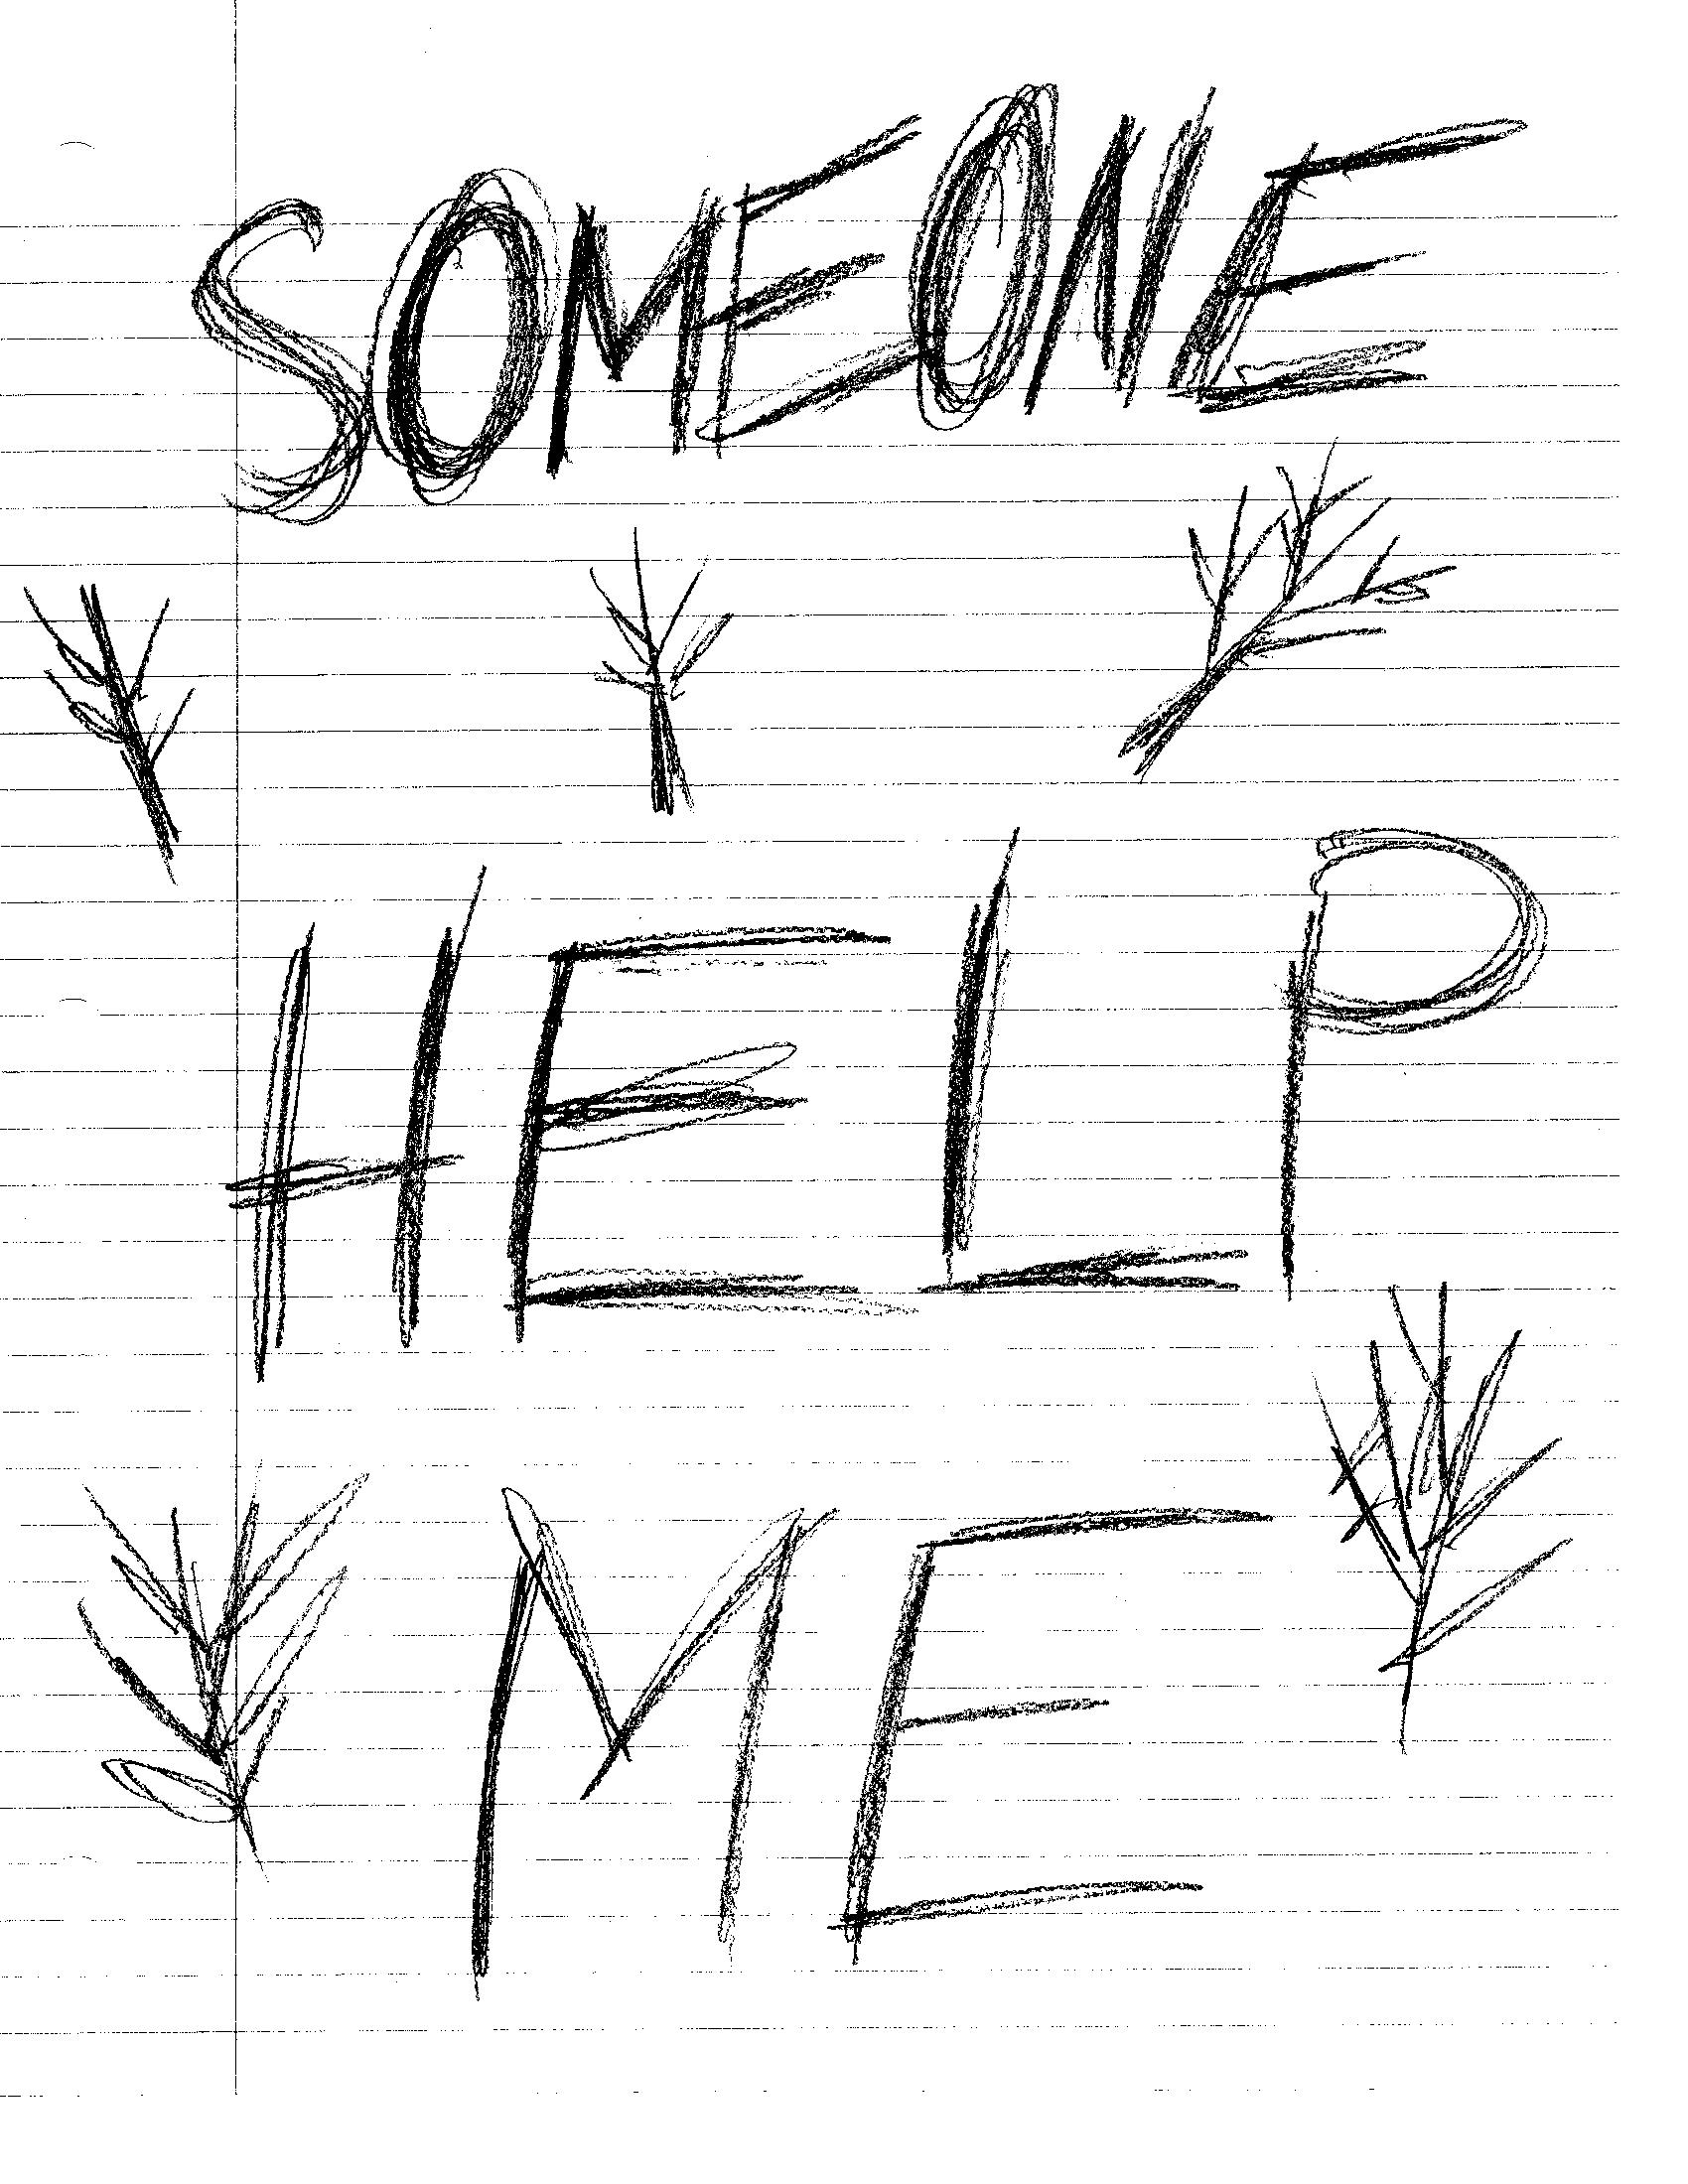 SOMEONE
HELP
ME